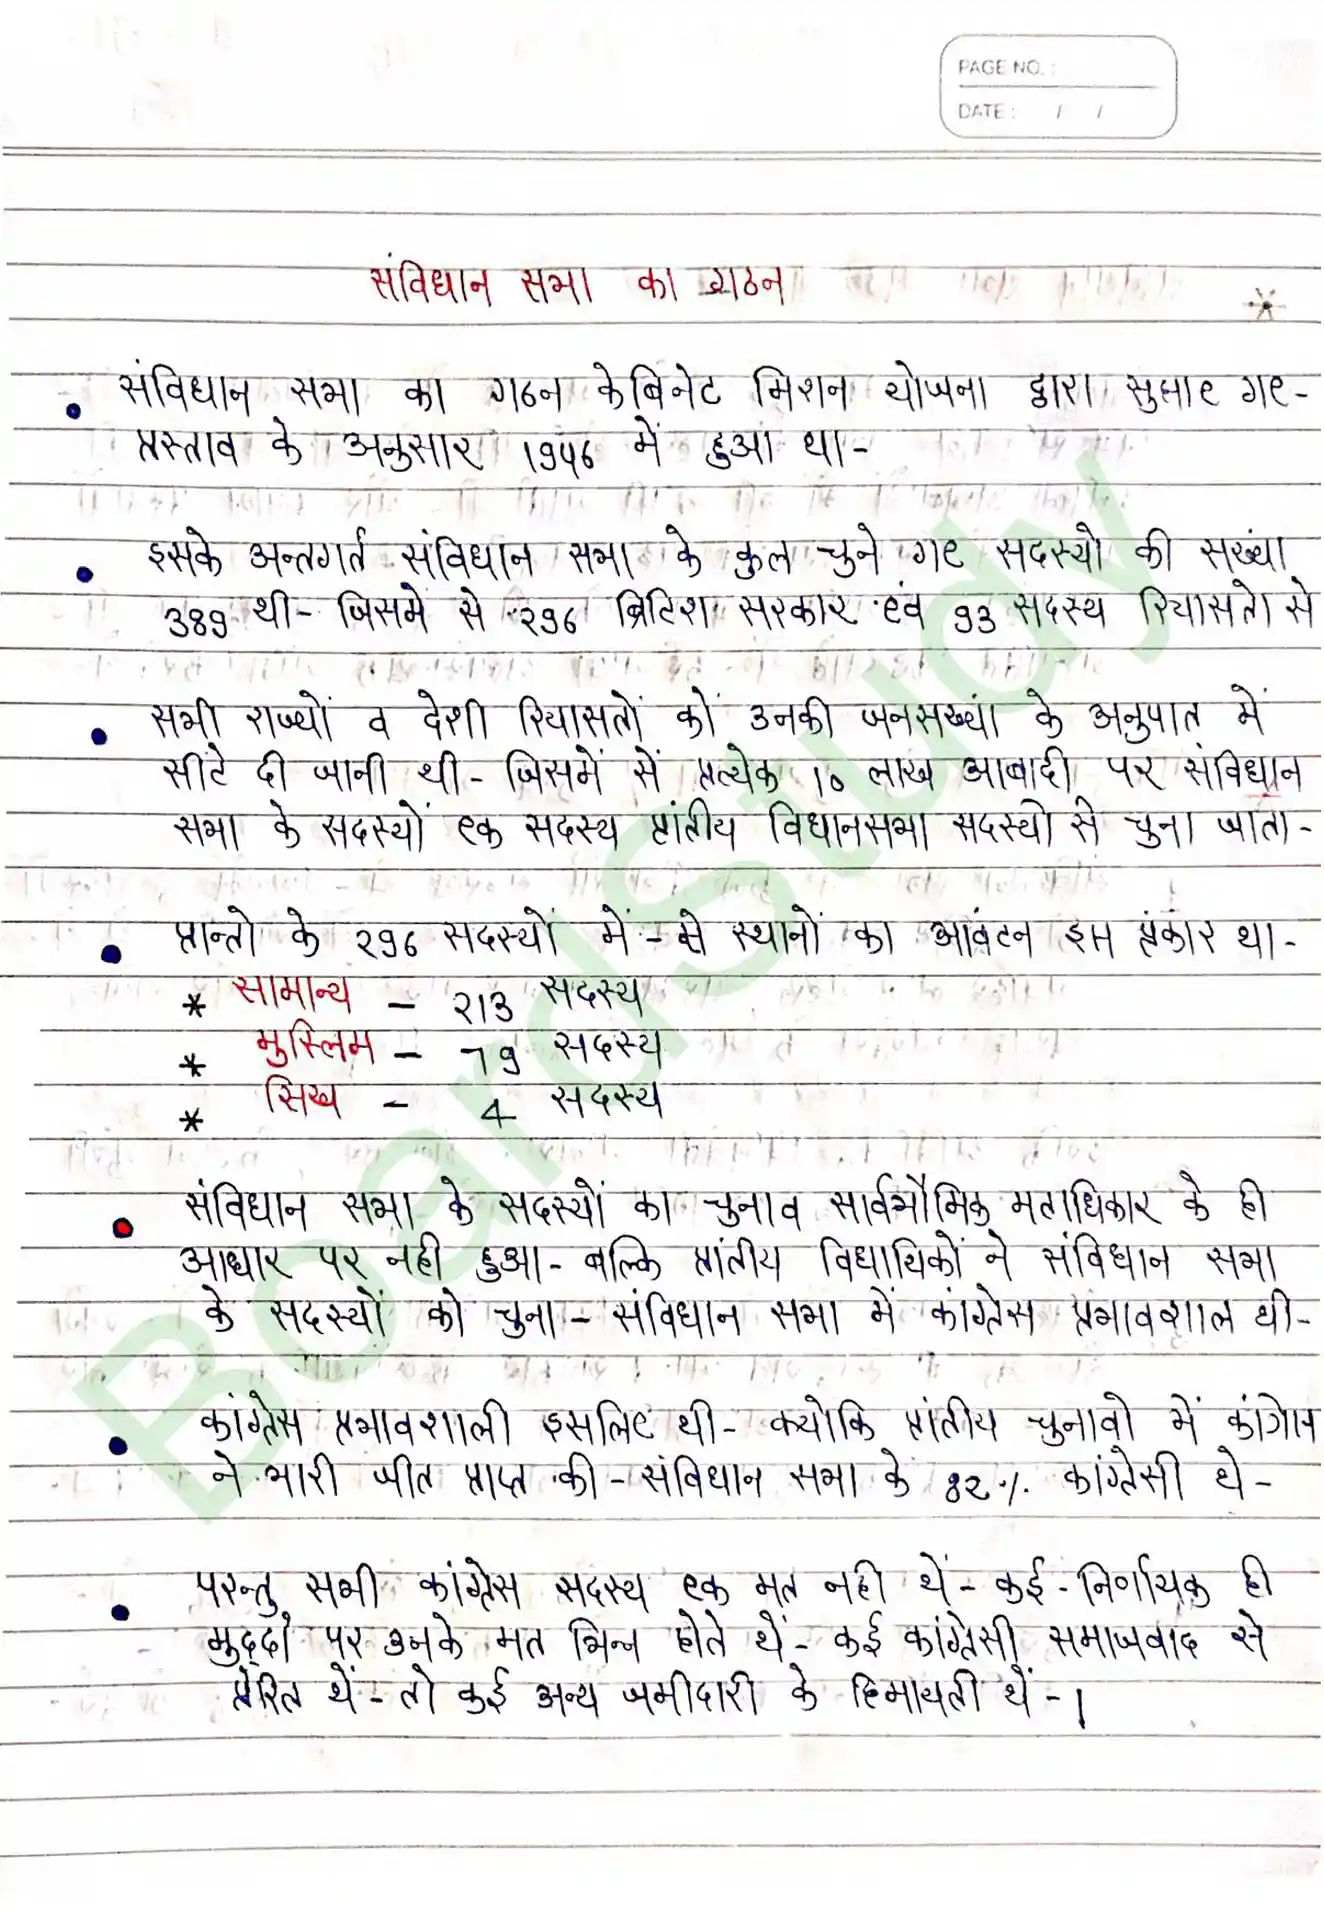 PAGE NO. :
DATE : / /
संविधान सभा का गठन
संविधान सभा का गठन केबिनेट मिशन योजना द्वारा सुझाए गए-
प्रस्ताव के अनुसार 1946 में हुआ था-
इसके अन्तगर्त संविधान सभा के कुल चुने गए सदस्यो की सख्या
389 थी- जिसमे से 296 ब्रिटिश सरकार एंव 93 सदस्य रियासतो से
सभी राज्यों व देशी रियासतों कों उनकी जनसख्यां के अनुपात में
सीटे दी जानी थी- जिसमें सें प्रत्येक 10 लाख आबादी पर संविधान
सभा के सदस्यों एक सदस्य प्रांतीय विधानसभा सदस्यो से चुना जाता-
प्रान्तो के 296 सदस्यों में- से स्थानों का आंवटन इस प्रंकार था-
* सामान्य - 213 सदस्य
* मुस्लिम - 79 सदस्य
* सिख - 4 सदस्य
संविधान सभा के सदस्यों का चुनाव सार्वभौमिक मताधिकार के ही
आधार पर नही हुआ- बल्कि प्रांतीय विधायिकों ने संविधान सभा
के सदस्यों को चुना- संविधान सभा में कांग्रेस प्रभावशाल थी-
कांग्रेस प्रभावशाली इसलिए थी- क्योकि प्रांतीय चुनावो में कांग्रेस
ने भारी जीत प्राप्त की- संविधान सभा के 82% कांग्रेसी थे-
परन्तु सभी कांग्रेस सदस्य एक मत नही थें- कुई- निर्णायक ही
मुद्दो पर उनके मत भिन्न होते थें- कई कांग्रेसी समाजवाद से
प्रेरित थें- तो कुई अन्य जमीदारी के हिमायती थें-।
BoardStudy